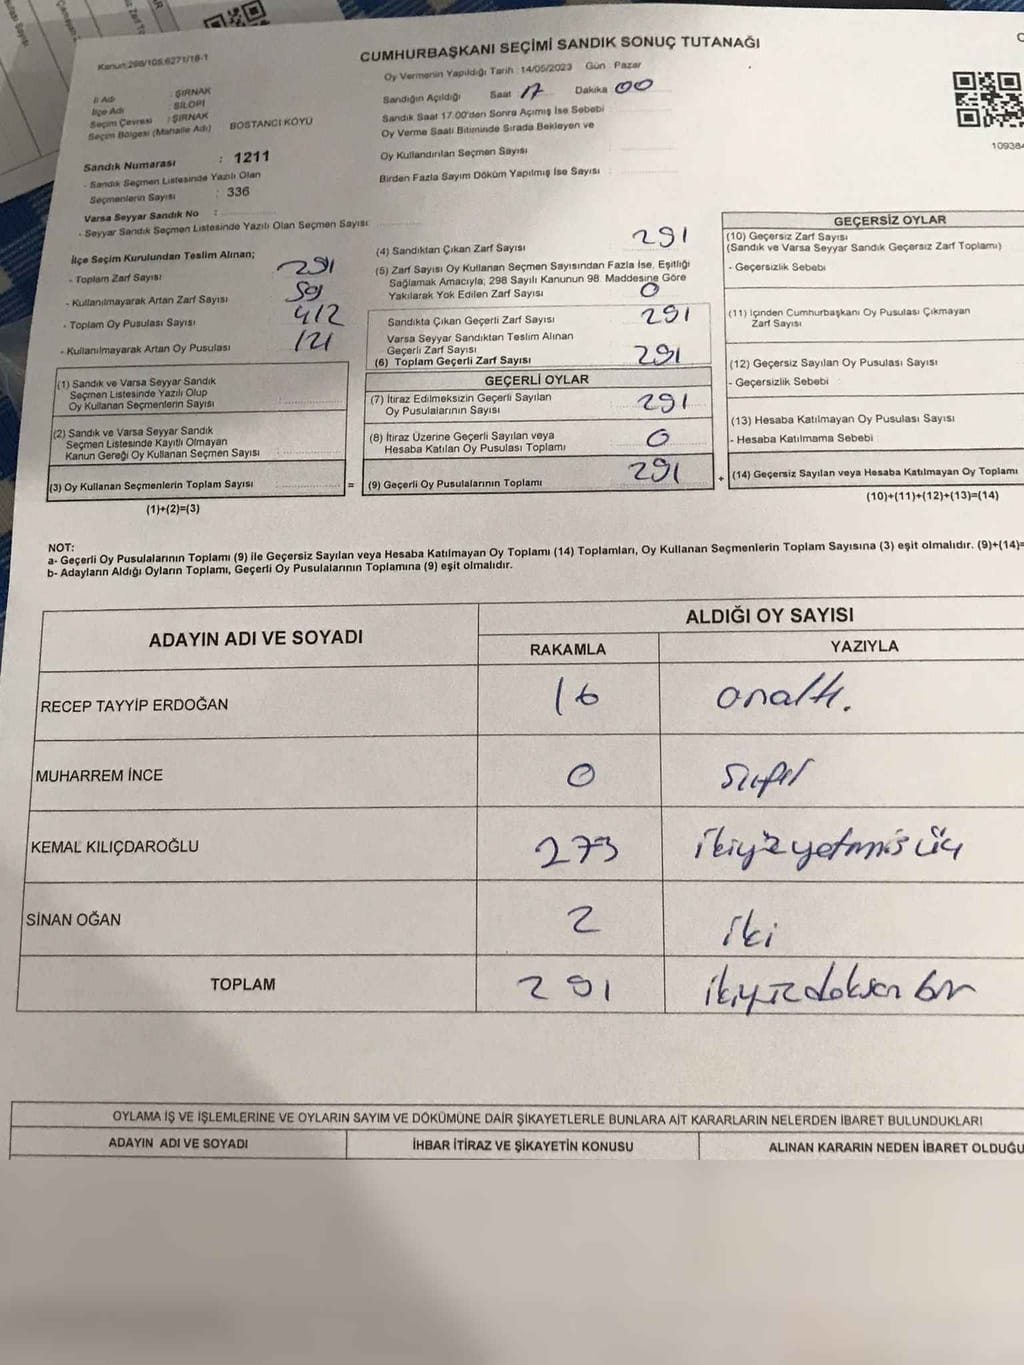 Kanun:298/105,6271/18-1
CUMHURBAŞKANI SEÇİMİ SANDIK SONUÇ TUTANAĞI
Oy Vermenin Yapıldığı Tarih :14/05/2023 Gün : Pazar
İl Adı : ŞIRNAK
İlçe Adı : SİLOPİ
Seçim Çevresi : ŞIRNAK
Seçim Bölgesi (Mahalle Adı) BOSTANCI KÖYÜ
Sandığın Açıldığı Saat 17 Dakika 00
Sandık Saat 17.00'den Sonra Açımış İse Sebebi
Oy Verme Saati Bitiminde Sırada Bekleyen ve
Oy Kullandırılan Seçmen Sayısı :
Birden Fazla Sayım Döküm Yapılmış İse Sayısı :
10938
Sandık Numarası : 1211
- Sandık Seçmen Listesinde Yazılı Olan
Seçmenlerin Sayısı : 336
Varsa Seyyar Sandık No :
- Seyyar Sandık Seçmen Listesinde Yazılı Olan Seçmen Sayısı:
İlçe Seçim Kurulundan Teslim Alınan;
- Toplam Zarf Sayısı 291
- Kullanılmayarak Artan Zarf Sayısı
- Toplam Oy Pusulası Sayısı 412
- Kullanılmayarak Artan Oy Pusulası 121
(1) Sandık ve Varsa Seyyar Sandık
Seçmen Listesinde Yazılı Olup
Oy Kullanan Seçmenlerin Sayısı :
(2) Sandık ve Varsa Seyyar Sandık
Seçmen Listesinde Kayıtlı Olmayan
Kanun Gereği Oy Kullanan Seçmen Sayısı :
(3) Oy Kullanan Seçmenlerin Toplam Sayısı =
(1)+(2)=(3)
(4) Sandıktan Çıkan Zarf Sayısı 291
(5) Zarf Sayısı Oy Kullanan Seçmen Sayısından Fazla İse, Eşitliği
Sağlamak Amacıyla, 298 Sayılı Kanunun 98. Maddesine Göre
Yakılarak Yok Edilen Zarf Sayısı 0
Sandıkta Çıkan Geçerli Zarf Sayısı 291
Varsa Seyyar Sandıktan Teslim Alınan
Geçerli Zarf Sayısı
(6) Toplam Geçerli Zarf Sayısı 291
GEÇERLİ OYLAR
(7) İtiraz Edilmeksizin Geçerli Sayılan
Oy Pusulalarının Sayısı 291
(8) İtiraz Üzerine Geçerli Sayılan veya
Hesaba Katılan Oy Pusulası Toplamı 0
(9) Geçerli Oy Pusulalarının Toplamı 291 +
GEÇERSİZ OYLAR
(10) Geçersiz Zarf Sayısı
(Sandık ve Varsa Seyyar Sandık Geçersiz Zarf Toplamı)
- Geçersizlik Sebebi
(11) İçinden Cumhurbaşkanı Oy Pusulası Çıkmayan
Zarf Sayısı
(12) Geçersiz Sayılan Oy Pusulası Sayısı
- Geçersizlik Sebebi
(13) Hesaba Katılmayan Oy Pusulası Sayısı
- Hesaba Katılmama Sebebi
(14) Geçersiz Sayılan veya Hesaba Katılmayan Oy Toplamı
(10)+(11)+(12)+(13)=(14)
NOT:
a- Geçerli Oy Pusulalarının Toplamı (9) ile Geçersiz Sayılan veya Hesaba Katılmayan Oy Toplamı (14) Toplamları, Oy Kullanan Seçmenlerin Toplam Sayısına (3) eşit olmalıdır. (9)+(14)=
b- Adayların Aldığı Oyların Toplamı, Geçerli Oy Pusulalarının Toplamına (9) eşit olmalıdır.
ADAYIN ADI VE SOYADI ALDIĞI OY SAYISI
RAKAMLA YAZIYLA
RECEP TAYYİP ERDOĞAN 16 onaltı.
MUHARREM İNCE 0 Sıfır
KEMAL KILIÇDAROĞLU 273 ikiyüzyetmiş üç
SİNAN OĞAN 2 iki
TOPLAM 291 ikiyüzdoksan bir
OYLAMA İŞ VE İŞLEMLERİNE VE OYLARIN SAYIM VE DÖKÜMÜNE DAİR ŞİKAYETLERLE BUNLARA AİT KARARLARIN NELERDEN İBARET BULUNDUKLARI
ADAYIN ADI VE SOYADI İHBAR İTİRAZ VE ŞİKAYETİN KONUSU ALINAN KARARIN NEDEN İBARET OLDUĞU